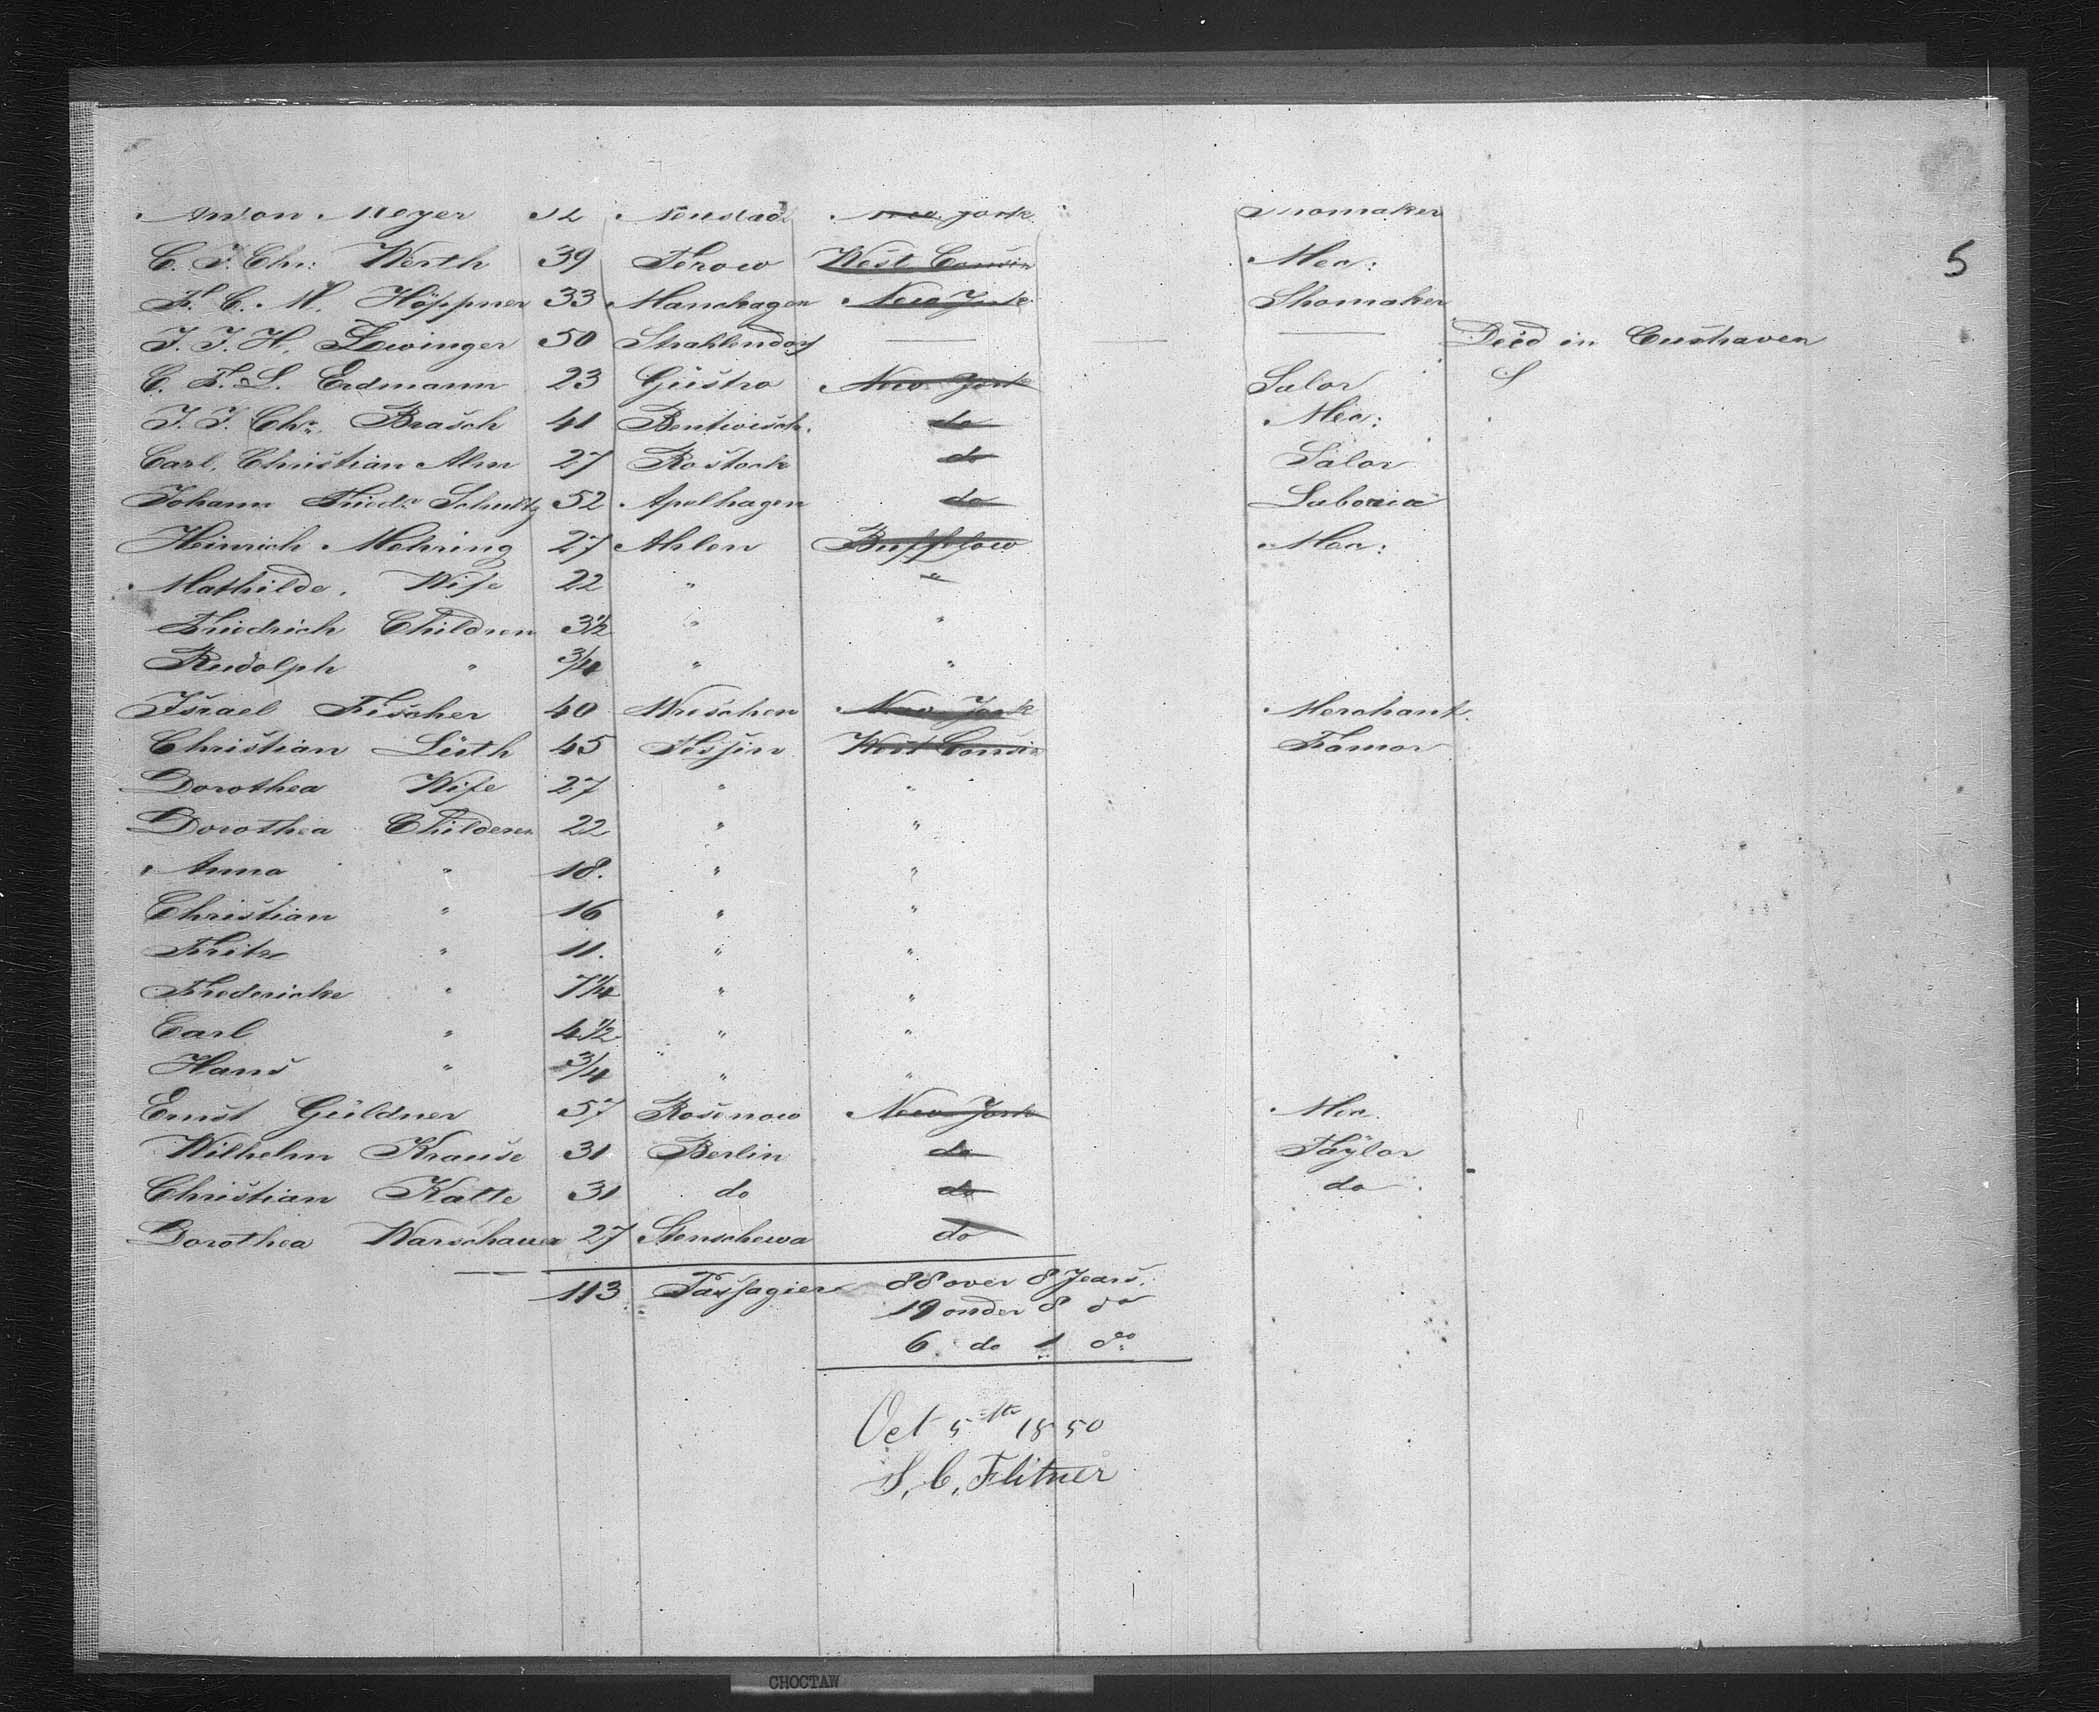 Meyer New York Shomaker
C. J. Chr: Werth 39 Terow West Consin Mea:
F. C. M. Höppner 33 Manchagen New York Shomaker
J. J. H. Lewinger 50 Strahlendorf — — — Died in Cuxhaven
C. F. L. Erdmann 23 Güstro New York Salor
J. J. Chr. Brasch 41 Bentwisch. do Mea:
Carl. Christian Alm 27 Rostock do Salor
Johann Friedr Schultz 52 Apelhagen do
Heinrich Mehring 27 Ahlen Bufflow Mea:
Mathilde. Wife 22 " "
Friedrich Children 3 1/2 " "
Rudolph " 3/4 " "
Israel Fischer 40 Wreschen New York Merchant.
Christian Lüth 45 Tessin West Consin Famor
Dorothea Wife 27 " "
Dorothea Childeren 22 " "
Anna " 18. " "
Christian " 16 " "
Fritz " 11. " "
Fredericke " 7 1/4 " "
Carl " 4 1/2 " "
Hans " 3/4 " "
Ernst Güldner 57 Rosenow New York Mea.
Wilhelm Krause 31 Berlin do Taylor
Christian Katte 31 do do do
Dorothea Warschauer 27 Stenschewa do
113 Passagier 88 over 8 Jears.
19 onder 8 do
6. do 1 do
Oct 5th 1850
S. C. Flitner
5
CHOCTAW